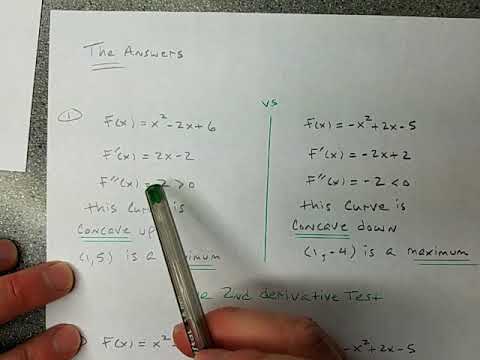 The Answers
vs
① F(x) = x² - 2x + 6
F'(x) = 2x - 2
F''(x) = 2 > 0
this curve is
concave up
(1, 5) is a maximum
F(x) = -x² + 2x - 5
F'(x) = -2x + 2
F''(x) = -2 < 0
this curve is
concave down
(1, -4) is a maximum
2nd derivative Test
F(x) = x²
-x² + 2x - 5